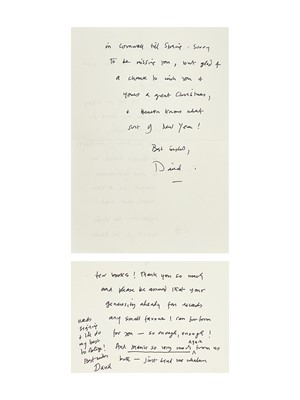 in Cornwall till Spring - sorry
to be missing you, but glad of
a chance to wish you &
yours a great Christmas,
& heaven knows what
sort of New Year!
Best wishes,
David.
few books! Thank you so much
and please be assured that your
generosity already far exceeds
any small favour I can perform
for you - so enough, enough!
And thanks so very much again from us
both - just send me whatever
needs
signing
& I'll do
my best
to oblige!
Best wishes
David